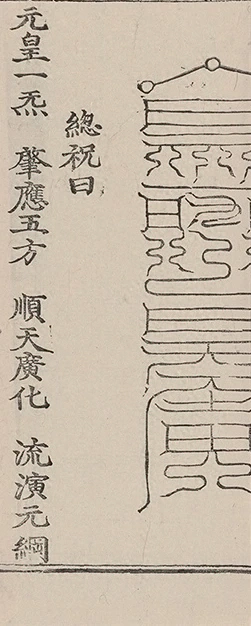 總祝曰
元皇一炁 肇應五方 順天廣化 流演元綱